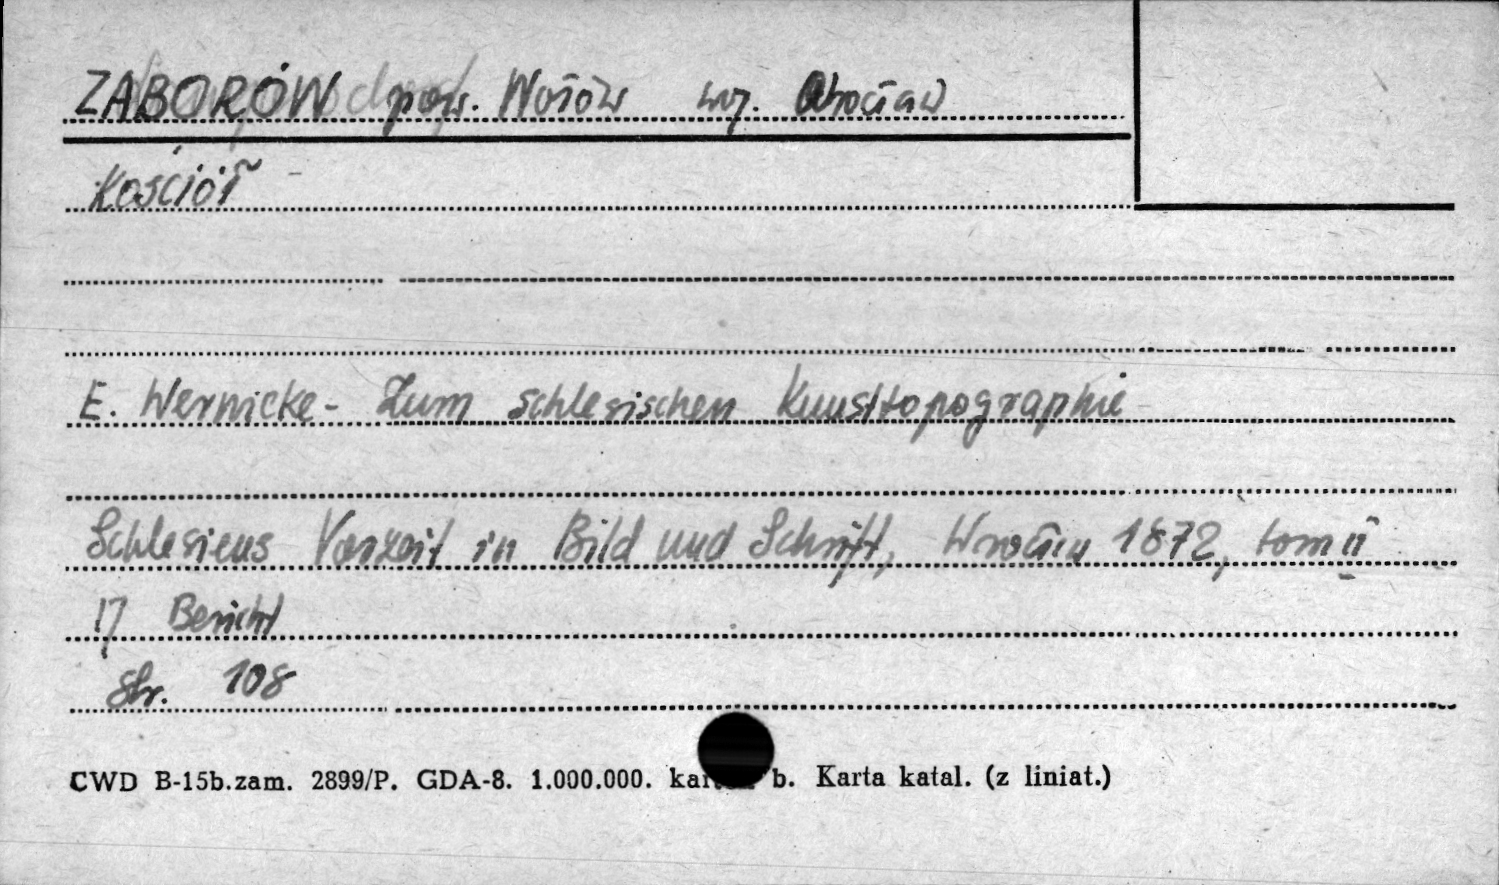 ZABORÓW pow. Wołów woj. Wrocław
Kościół
E. Wernicke - Zum schlesischen Kunsttopographie
Schlesiens Vorzeit in Bild und Schrift, Wrocław 1872, tom II
17 Bericht
Str. 108
CWD B-15b.zam. 2899/P. GDA-8. 1.000.000. b. Karta katal. (z liniat.)